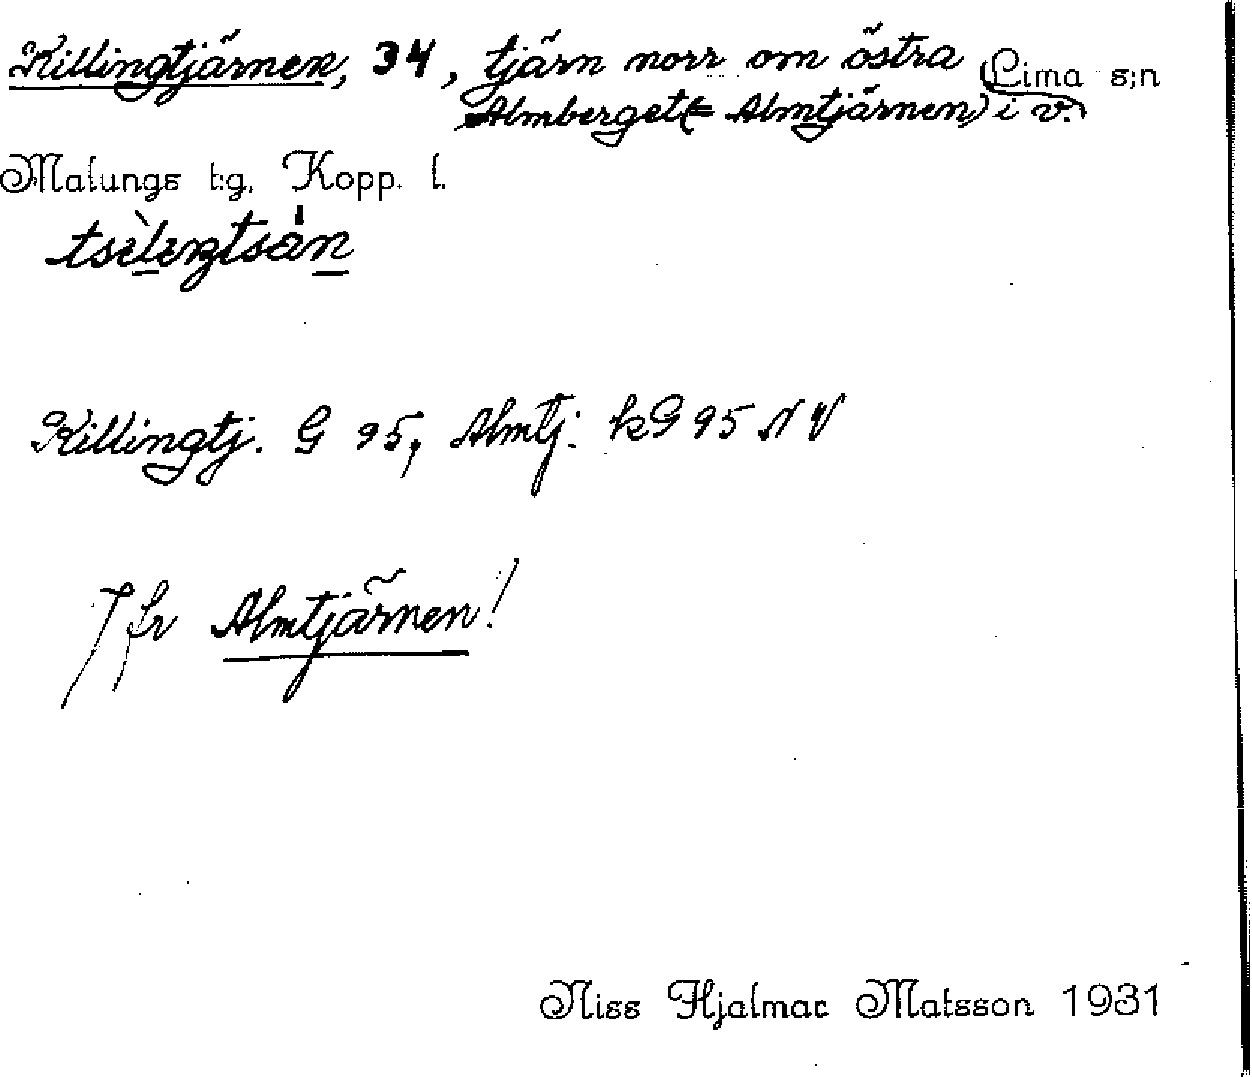 Killingtjärnen, 34, tjärn norr om östra Lima s:n
Almberget (= Almtjärnen) i v.
Malungs t:g, Kopp. l.
Killingtj. G 95, Almtj. kG 95 NV
Jfr Almtjärnen!
Niss Hjalmar Matsson 1931